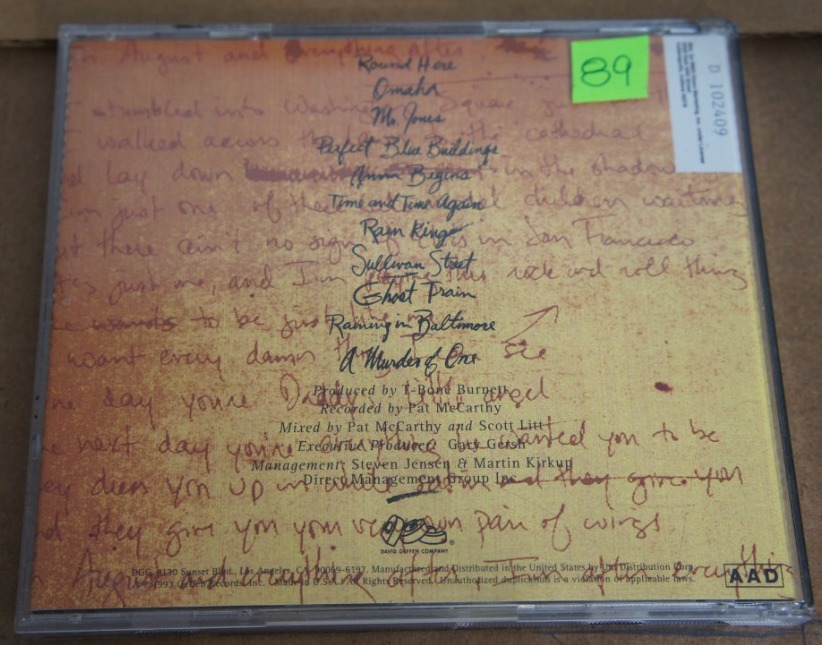 in August and everything after
Round Here
89
D 102409
Omaha
stumbled into Washington Square
Mr. Jones
walked across the cathedral
Perfect Blue Buildings
lay down in the shadow
Anna Begins
just one of these children waiting
Time and Time Again
Rain King
there ain't no sign of in San Francisco
Sullivan Street
just me, and I'm this rock and roll thing
Ghost Train
wants to be just like me
Raining in Baltimore
want every damn thing see
A Murder of One
Produced by T-Bone Burnett
day you're Daddy's little angel
Recorded by Pat McCarthy
Mixed by Pat McCarthy and Scott Litt
Executive Producer: Gary Gersh
next day you're wanted you to be
Management: Steven Jensen & Martin Kirkup
Direct Management Group Inc.
dress you up in white satin and they give you
they give you your very own pair of wings
DAVID GEFFEN COMPANY
®
DGC, 9130 Sunset Blvd., Los Angeles, CA 90069-6197. Manufactured and Distributed in the United States by Uni Distribution Corp.
1993 Geffen Records, Inc. Made in U.S.A. All Rights Reserved. Unauthorized duplication is a violation of applicable laws.
August and everything after I'm after everything
AAD